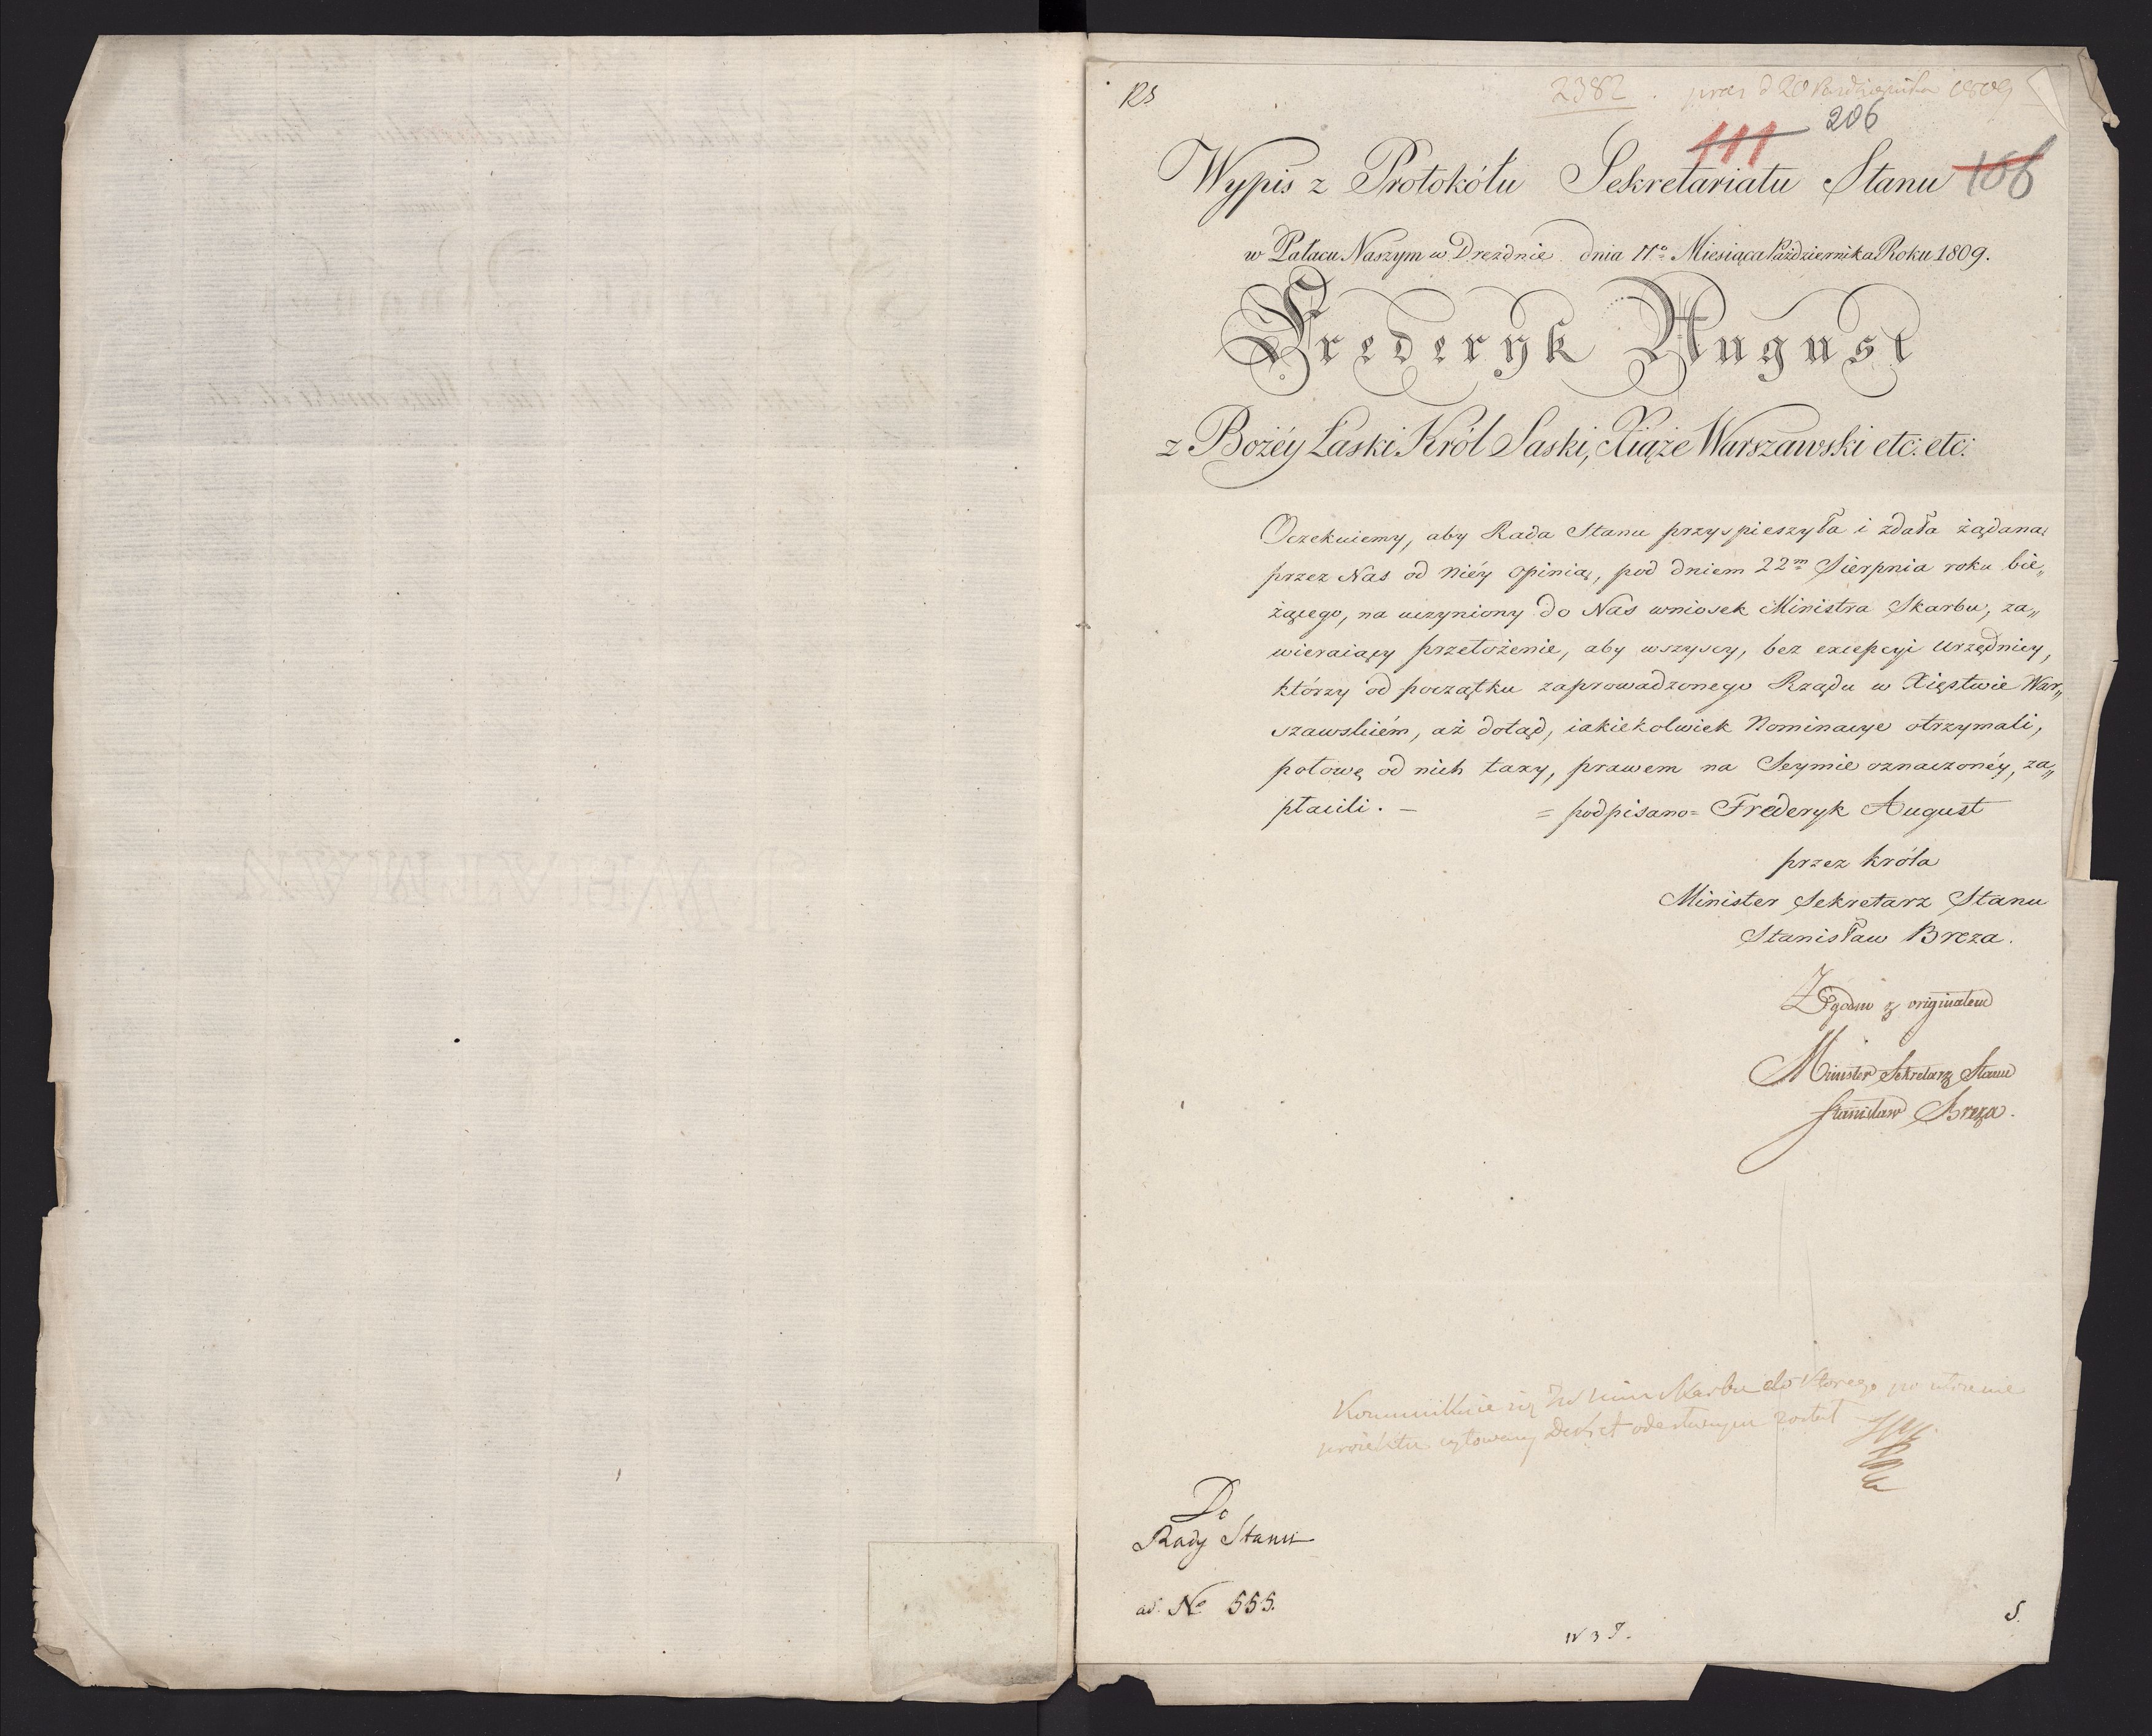 RS
2382. prez d 20 Października 1809
206
111
Wypis z Protokółu Sekretariatu Stanu 106
w Pałacu Naszym w Dreźdnie dnia 11º Miesiąca Października Roku 1809.
Frederyk August
z Bożéy Łaski Król Saski, Xiąże Warszawski etc: etc:
Oczekuiemy, aby Rada Stanu przyspieszyła i zdała żądaną
przez Nas od niéy opinią, pod dniem 22m Sierpnia roku bie„
żącego, na uczyniony do Nas wniosek Ministra Skarbu, za„
wieraiący przełożenie, aby wszyscy, bez excepcyi urzędnicy,
którzy od początku zaprowadzonego Rządu w Xięstwie War„
szawskiém, aż dotąd, iakiekolwiek Nominacye otrzymali,
połowę od nich taxy, prawem na Seymie oznaczonéy, za„
płacili. — = podpisano = Frederyk August
przez króla
Minister Sekretarz Stanu
Stanisław Breza.
Zgodno z originałem
Minister Sekretarz Stanu
Stanisław Breza.
Kommunikuie się Skarbu do którego
proiektu cytowany Dekret odesłanym został
Do
Rady Stanu
ad. No 555.
S.